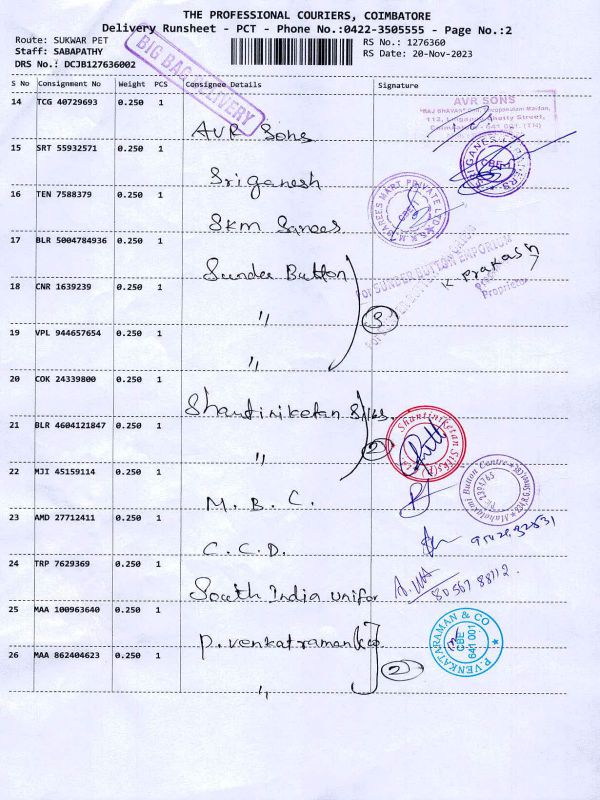 THE PROFESSIONAL COURIERS, COIMBATORE
Delivery Runsheet - PCT - Phone No.:0422-3505555 - Page No.:2
Route: SUKWAR PET
RS No.: 1276360
Staff: SABAPATHY
RS Date: 20-Nov-2023
DRS No.: DCJB127636002
BIG BAG DELIVERY
S No Consignment No Weight PCS Consignee Details Signature
14 TCG 40729693 0.250 1
AVR Sons
AVR SONS
112, Street,
15 SRT 55932571 0.250 1
Sri ganesh
SRI GANESH
CBE
16 TEN 7588379 0.250 1
SKM Sarees
S.K.M. SAREES MART PRIVATE LTD
CBE
17 BLR 5004784936 0.250 1
Sunder Button
For SUNDER BUTTON EMPORIUM
K Prakash
Proprietor
18 CNR 1639239 0.250 1
"
3
19 VPL 944657654 0.250 1
"
20 COK 24339800 0.250 1
Shantiniketan Silks.
Shantiniketan Silks
21 BLR 4604121847 0.250 1
"
2
22 MJI 45159114 0.250 1
M.B.C.
Mahalaxmi Button Centre
23 AMD 27712411 0.250 1
C.C.D.
24 TRP 7629369 0.250 1
South India Unifor
80567 88112.
25 MAA 100963640 0.250 1
P. Venkatraman & co
P. VENKATARAMAN & CO
CBE
641 001
26 MAA 862404623 0.250 1
"
2